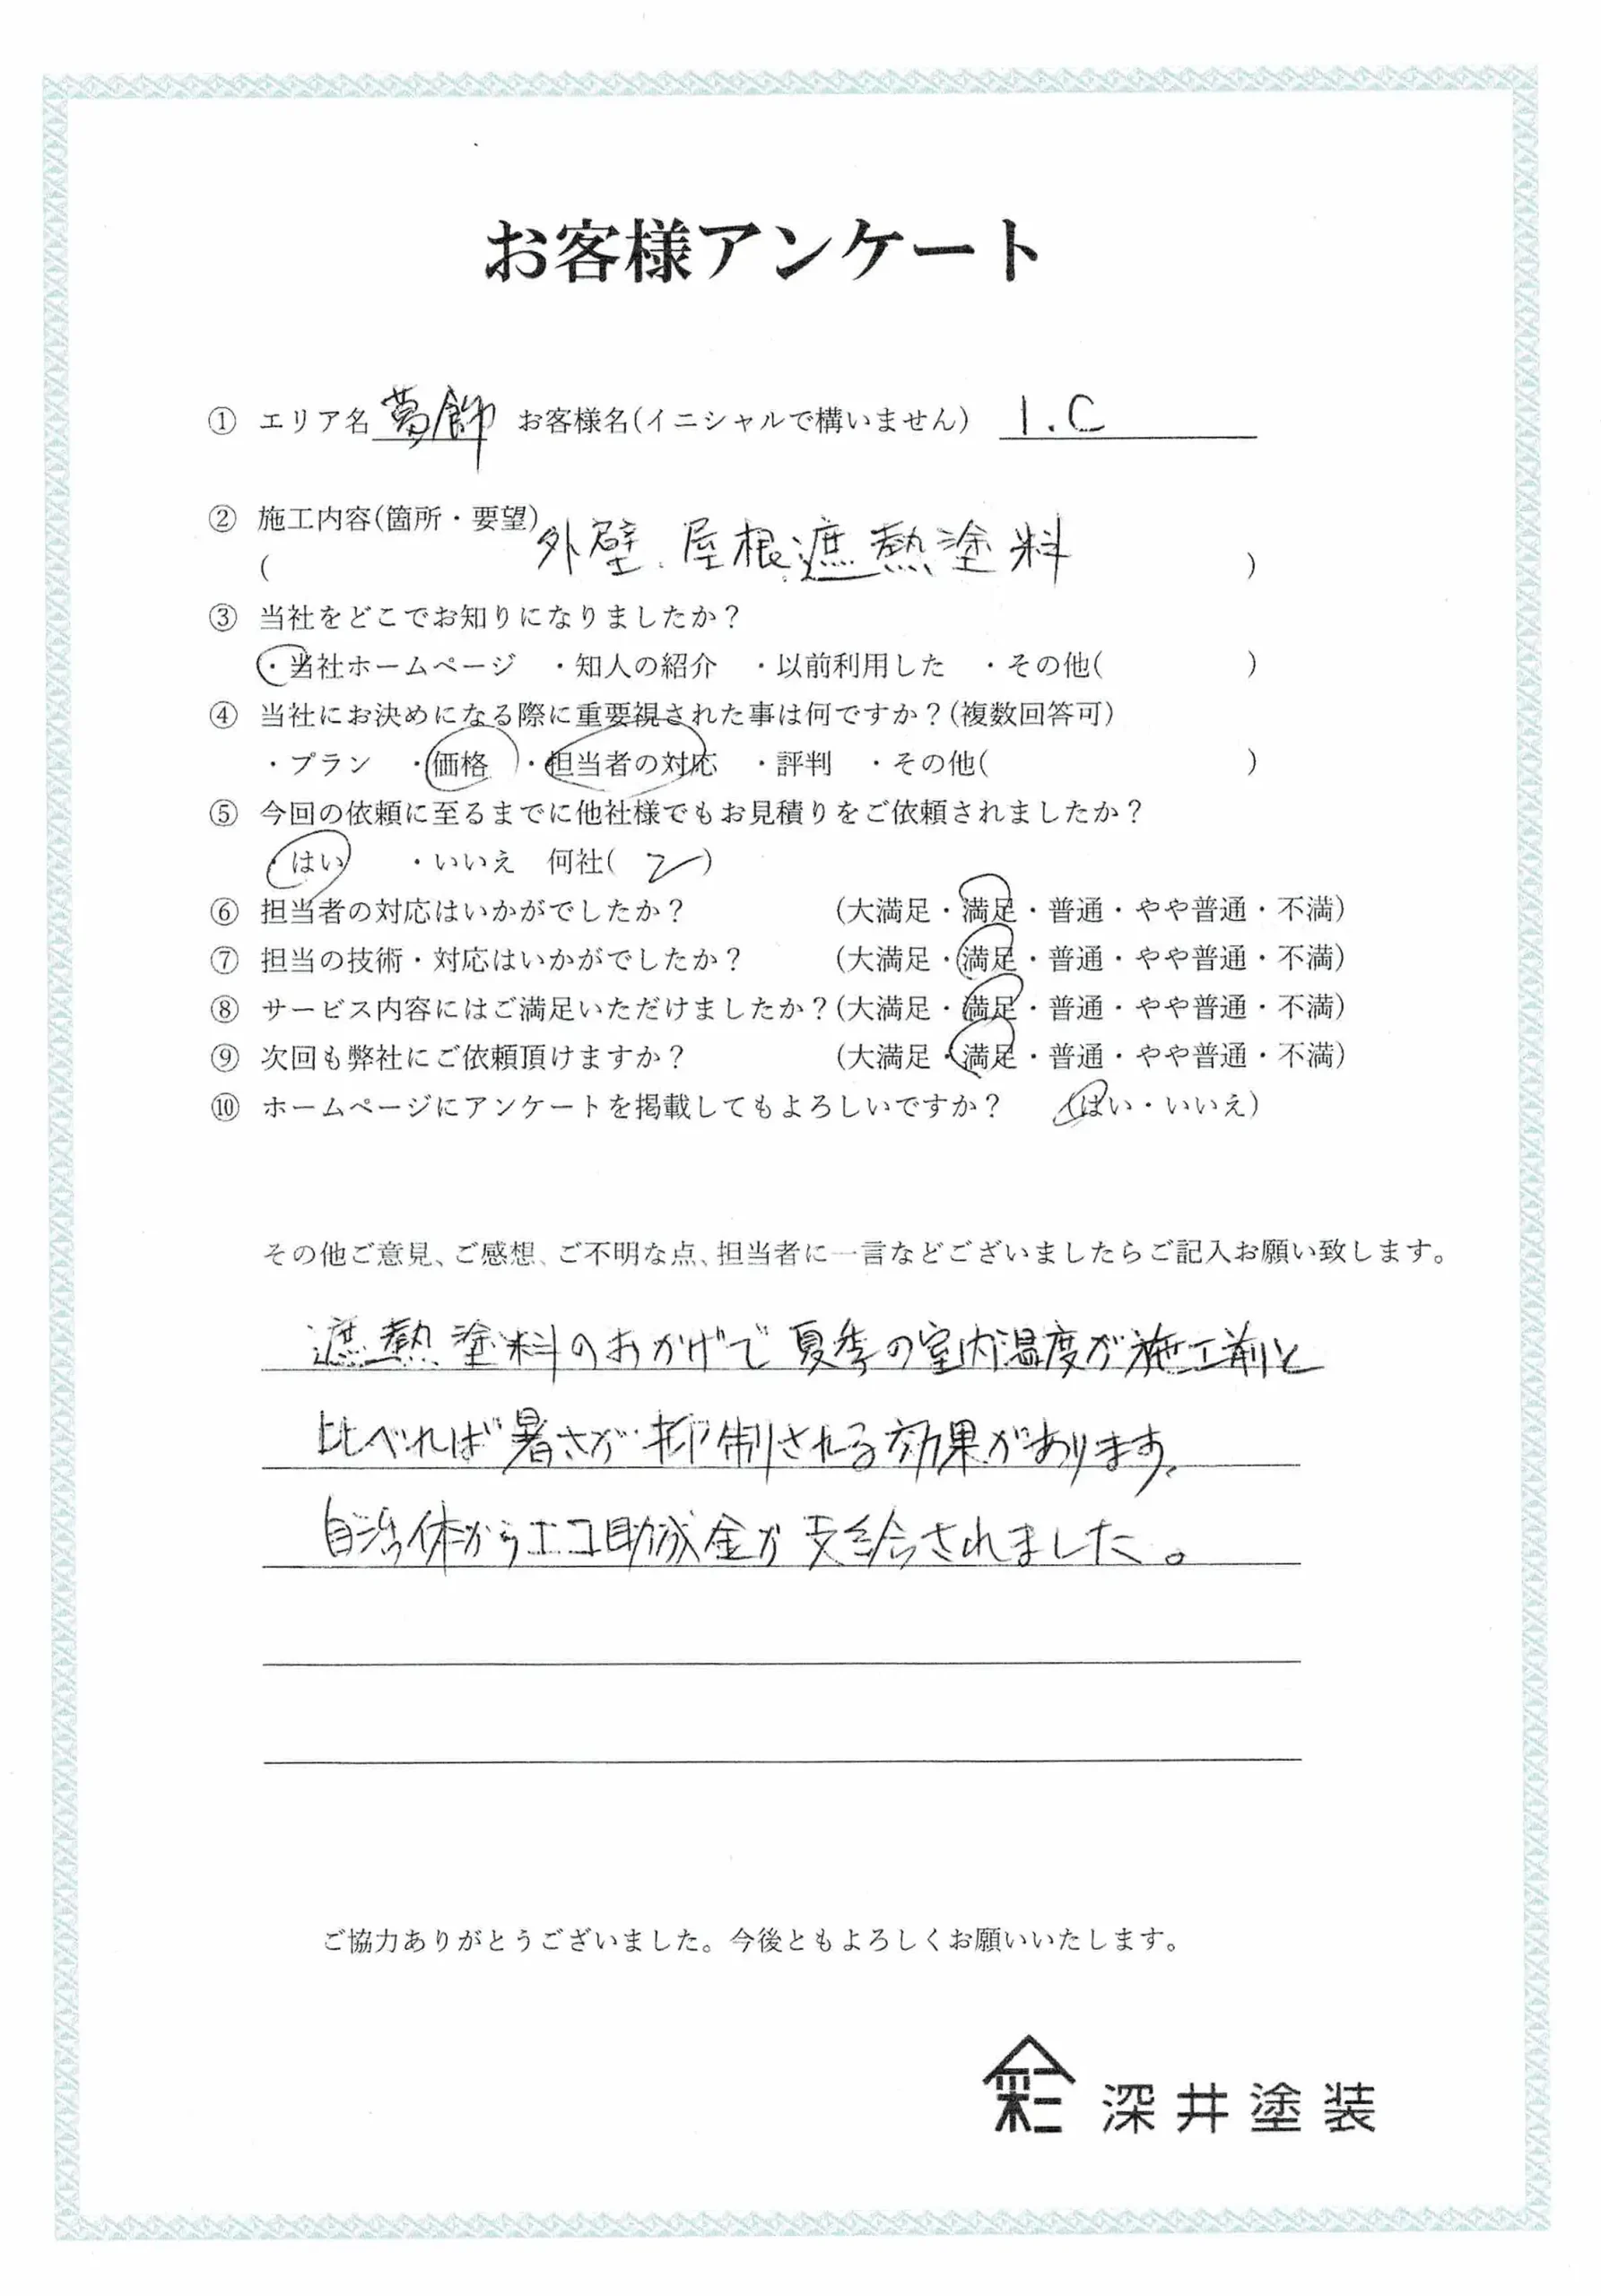 お客様アンケート
① エリア名 葛飾 お客様名(イニシャルで構いません) I.C
② 施工内容(箇所・要望)
( 外壁、屋根遮熱塗料 )
③ 当社をどこでお知りになりましたか？
・当社ホームページ ・知人の紹介 ・以前利用した ・その他( )
④ 当社にお決めになる際に重要視された事は何ですか？(複数回答可)
・プラン ・価格 ・担当者の対応 ・評判 ・その他( )
⑤ 今回の依頼に至るまでに他社様でもお見積りをご依頼されましたか？
・はい ・いいえ 何社( 2 )
⑥ 担当者の対応はいかがでしたか？ (大満足・満足・普通・やや普通・不満)
⑦ 担当の技術・対応はいかがでしたか？ (大満足・満足・普通・やや普通・不満)
⑧ サービス内容にはご満足いただけましたか？(大満足・満足・普通・やや普通・不満)
⑨ 次回も弊社にご依頼頂けますか？ (大満足・満足・普通・やや普通・不満)
⑩ ホームページにアンケートを掲載してもよろしいですか？ (はい・いいえ)
その他ご意見、ご感想、ご不明な点、担当者に一言などございましたらご記入お願い致します。
遮熱塗料のおかげで夏季の室内温度が施工前と
比べれば暑さが抑制される効果があります、
自治体からエコ助成金が支給されました。
ご協力ありがとうございました。今後ともよろしくお願いいたします。
深井塗装